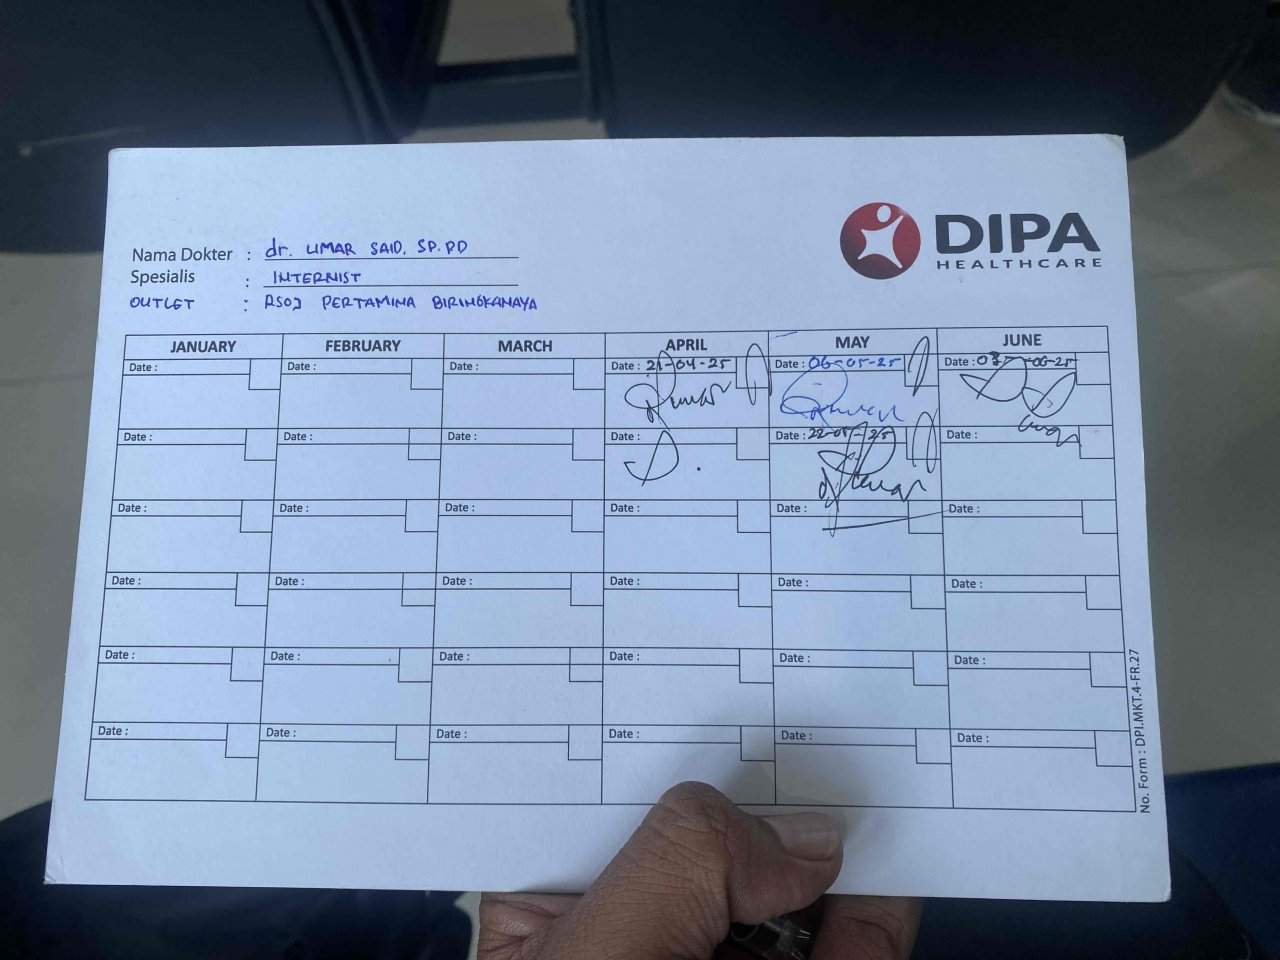 DIPA
HEALTHCARE
Nama Dokter : dr. UMAR SAID. SP. PD
Spesialis : INTERNIST
OUTLET : RSOJ PERTAMINA BIRINGKANAYA
JANUARY FEBRUARY MARCH APRIL MAY JUNE
Date : Date : Date : Date : 21-04-25 Date : 06-05-25 Date : 03-06-25
Date : Date : Date : Date : Date : 22-05-25 Date :
Date : Date : Date : Date : Date : Date :
Date : Date : Date : Date : Date : Date :
Date : Date : Date : Date : Date : Date :
Date : Date : Date : Date : Date : Date :
No. Form : DPI.MKT.4-FR.27